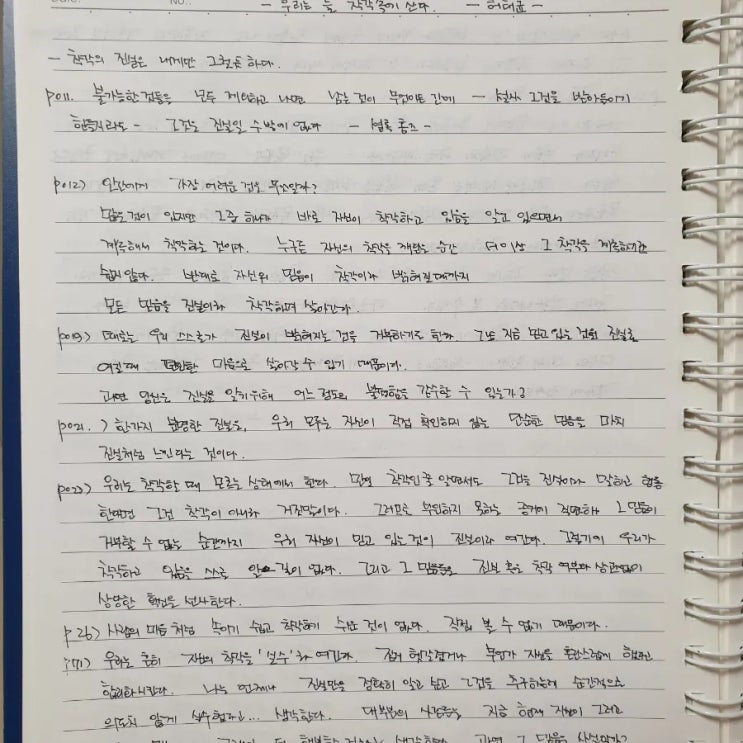 - 우리는 늘 착각속에 산다. - 허태균 -
- 착각의 진실은 내게만 그럴듯하다.
p011. 불가능한 것들을 모두 제외하고 나면 남는 것이 무엇이든 간에 - 설사 그것을 받아들이기
힘들지라도 - 그것는 진실일 수밖에 없다 - 셜록 홈즈 -
p012) 인간에게 가장 어려운 것은 무엇일까?
많은 것이 있지만 그중 하나가 바로 자신이 착각하고 있음을 알고 있으면서
계속해서 착각하는 것이다. 누구든 자신의 착각을 깨닫는 순간 더이상 그 착각을 계속하기란
쉽지 않다. 반대로 자신의 믿음이 착각이라 밝혀질때까지
모든 믿음을 진실이라 착각하며 살아간다.
p019) 때로는 우리 스스로가 진실이 밝혀지는 것을 거부하기도 한다. 그냥 지금 믿고 있는 것의 진실로
여길때 편안한 마음으로 살아갈 수 있기 때문이다.
과연 당신은 진실을 알기위해 어느 정도의 불편함을 감수할 수 있는가?
p021.) 한가지 분명한 진실은, 우리 모두는 자신이 직접 확인하지 않은 단순한 믿음을 마치
진실처럼 느낀다는 것이다.
p023) 우리는 착각할 때 모르는 상태에서 한다. 만일 착각인줄 알면서도 그것을 진실이라 말하고 행동
한다면 그건 착각이 아니라 거짓말이다. 그러므로 부인하지 못하는 증거에 직면하여 그 믿음이
거부할 수 없는 순간까지 우리 자신이 믿고 있는 것이 진실이라 여긴다. 그렇기에 우리가
착각하고 있음을 스스로 알 길이 없다. 그리고 그 믿음들은 진실 혹은 착각 여부와 상관없이
상당한 확신을 선사한다.
p26) 사람의 마음처럼 속이기 쉽고 착각하기 쉬운 것이 없다. 직접 볼 수 없기 때문이다.
우리는 흔히 자신의 착각을 '실수'라 여긴다. 잠깐 헷갈렸거나 누군가 자신을 혼란스럽게 했다고
합리화시킨다. 나는 언제나 진실만을 정확히 알고 싶고 그것을 추구하는데 순간적으로
의도치 않게 실수했다고... 생각한다. 대부분의 사람들은 지금 현재 자신이 그리고
생각한다. 과연 그 믿음은 사실일까?